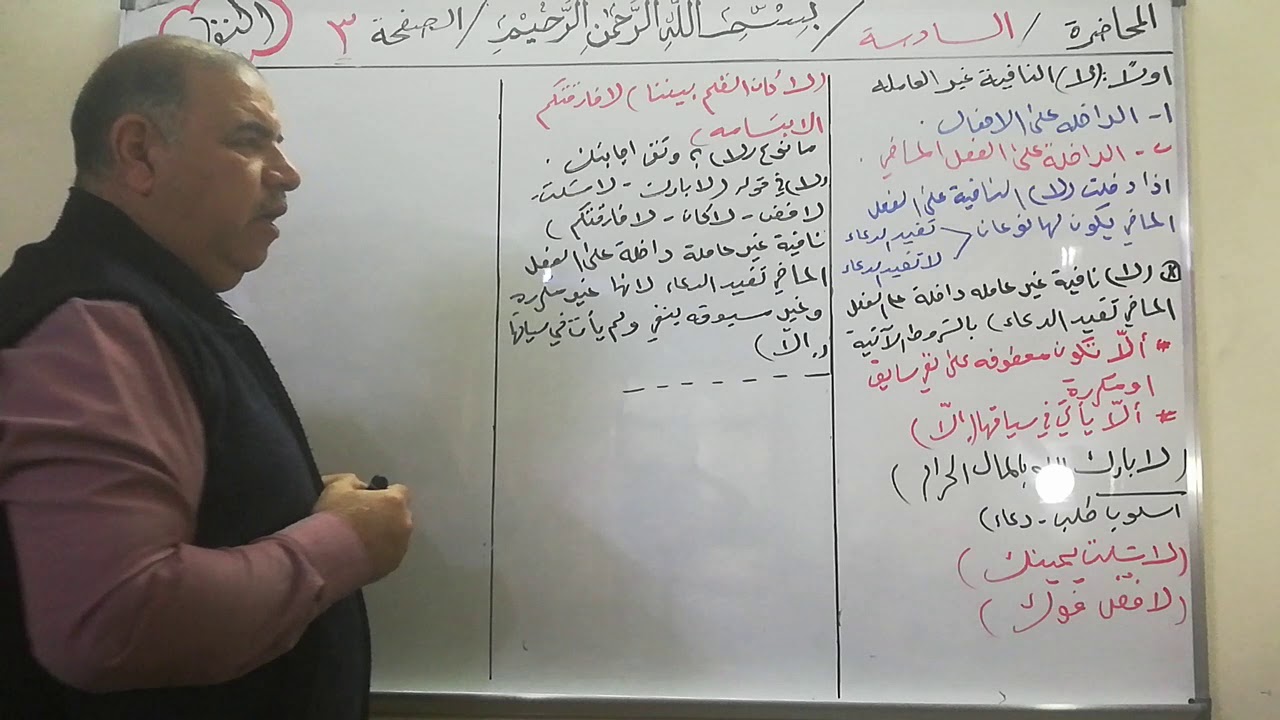 المحاضرة / السادسة / بسم الله الرحمن الرحيم / الصفحة ٣ النفي
اولاً: (لا) النافية غير العامله
ا- الداخله على الافعال .
ب- الداخلة على الفعل الماضي .
اذا دخلت (لا) النافية على الفعل
الماضي يكون لها نوعان
تفيد الدعاء
لا تفيد الدعاء
(لا) نافية غير عامله داخلة على الفعل
الماضي تفيد الدعاء) بالشروط الآتية
* ألّا تكون معطوفه على نفي سابق
او مكررة
* ألّا يأتي في سياقها (إلّا)
(لا بارك الله بالمال الحرام)
اسلوب طلب - دعاء)
(لا شلت يمينك)
(لا فضّ فوك)
(لا كان الظلم بيننا) لا فارقتكم
الابتسامه)
ما نوع (لا) ؟ وثق اجابتك .
(لا) في قوله (لا بارك - لا شلت -
لا فض - لا كان - لا فارقتكم)
نافية غير عاملة داخلة على الفعل
الماضي تفيد الدعاء لانها غير مكررة
وغير مسبوقه بنفي ولم يأت في سياقها
(إلّا)